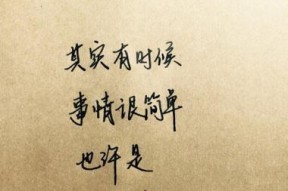 其实有时候
事情很简单
也许是